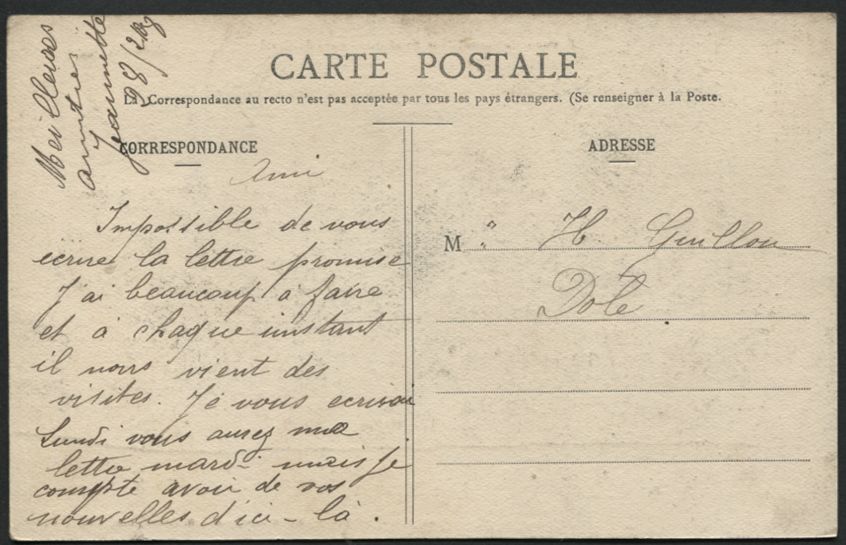 CARTE POSTALE
La Correspondance au recto n'est pas acceptée par tous les pays étrangers. (Se renseigner à la Poste.
CORRESPONDANCE
Ami
Impossible de vous
écrire la lettre promise
J'ai beaucoup à faire
et à chaque instant
il nous vient des
visites. Je vous ecrirai
Lundi vous aurez ma
lettre mardi mais je
compte avoir de vos
nouvelles d'ici - là.
Meilleures
amitiés
Jeannette
ADRESSE
M " H Guillou
Dole